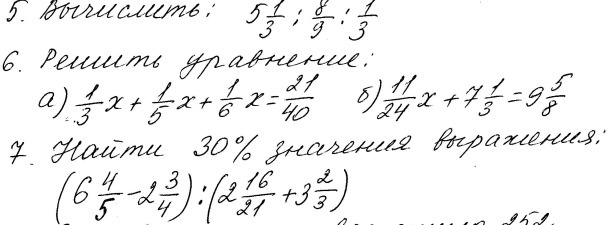 5. Вычислить: 5 1/3 : 8/9 : 1/3
6. Решить уравнение:
а) 1/3 x + 1/5 x + 1/6 x = 21/40 б) 11/24 x + 7 1/3 = 9 5/8
7. Найти 30% значения выражения:
(6 4/5 - 2 3/4) : (2 16/21 + 3 2/3)
252.